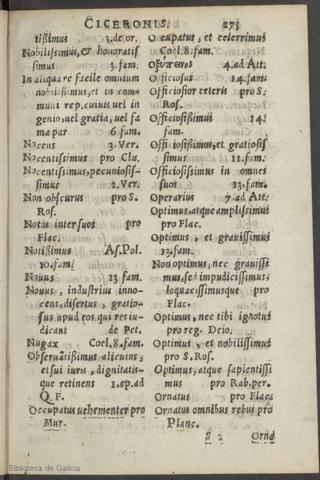 CICERONIS. 275
tißimus 3.de or.
Nobilißimus, & honoratif
simus 3.fam.
In aliqua re facile omnium
nobilißimus, et in com-
muni rep. cuiuis uel in
genio, uel gratia, uel fa
ma par 6 fam.
Nocens 3. Ver.
Nocentissimus pro Clu.
Nocentissimus, pecuniosis-
simus 2. Ver.
Non obscurus pro S.
Ros.
Notus inter suos pro
Flac.
Notißimus As. Pol.
10. fam.
Nouus 13 fam.
Nouus, industrius inno-
cens, disertus, gratio-
sus apud eos qui res iu-
dicant de Pet.
Nugax Coel. 8. fam.
Obseruãtißimus alicuius,
et sui iuris, dignitatis-
que retinens 1. ep. ad
Q. F.
Occupatus uehementer pro
Mur.
Occupatus, et celerrimus
Coel. 8. fam.
4. ad Att.
Officiosus 14. fam.
Officiosior ceteris pro S.
Ros.
Officiosißimus 14.
fam.
Officiosißimus, et gratiosis
simus 11. fam.
Officiosissimus in omnes
suos 13. fam.
Operarius 7. ad Att.
Optimus, atque amplissimus
pro Flac.
Optimus, et grauissimus
13. fam.
Non optimus, nec grauissi
mus, sed impudicissimus:
loquacissimusque pro
Flac.
Optimus, nec tibi ignotus
pro reg. Deio.
Optimus, et nobilissimus
pro S. Ros.
Optimus, atque sapientissi
mus pro Rab. per.
Ornatus pro Flac.
Ornatus omnibus rebus pro
Planc.
S 2 Orna
Biblioteca de Galicia